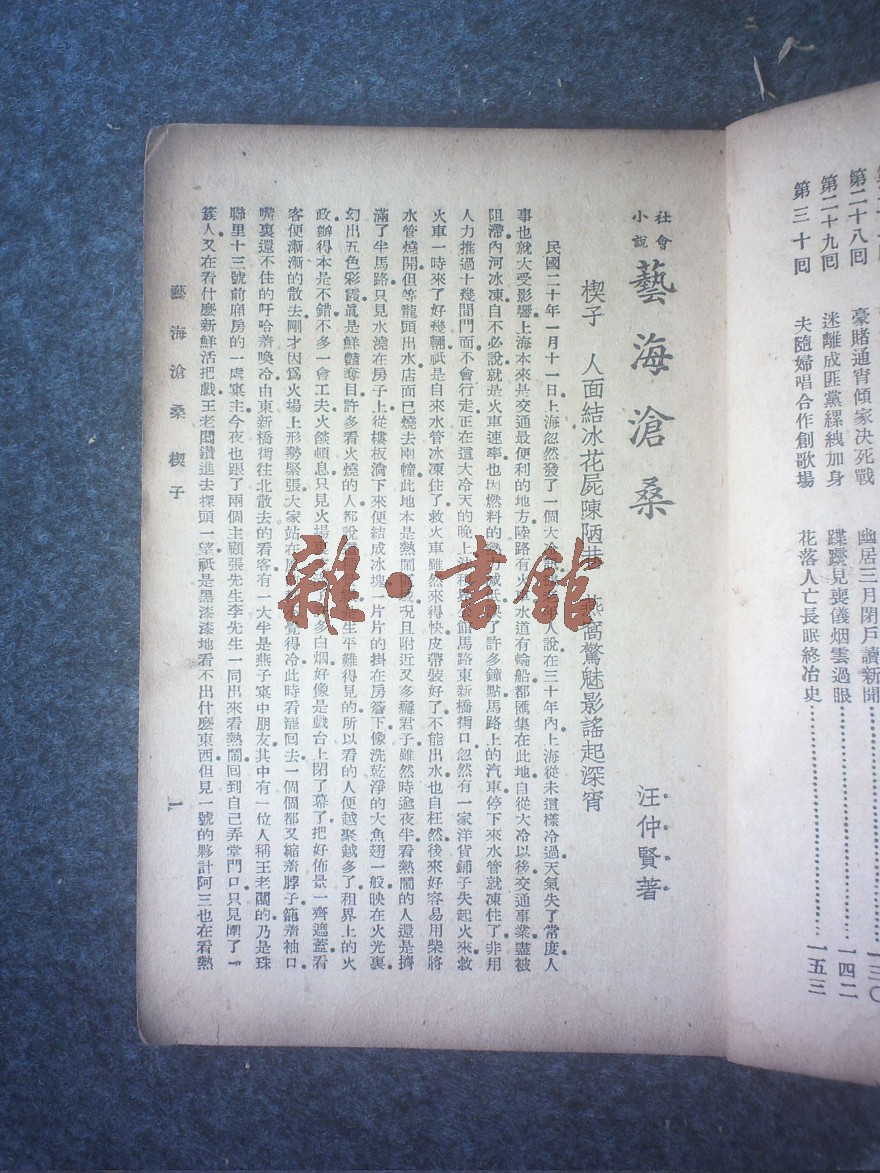 第二十八回 豪賭通宵傾家決死戰 幽居三月閉戶讀新聞…………一三〇
第二十九回 迷離成匪黨縲絏加身 蹀躞見喪儀烟雲過眼…………一四二
第三十回 夫隨婦唱合作創歌場 花落人亡長眠終冶史…………一五三
社會小說 藝海滄桑
汪仲賢著
楔子 人面結冰花屍陳陋巷 燕窩驚魅影謠起深宵
民國二十年一月十一日上海忽然發了一個大冷 年人說在三十年內上海從未這樣冷過天氣失了常度人
事也就大受影響上海本來是交通最便利的地方陸路有火 水道有輪船都匯集在此地自從大冷以後交通事業盡被
阻滯內河冰凍自不必說就是火車速率也因燃料的 減低 了許多鐘點馬路上的汽車停下來水管就凍住了非用
人力推過十幾間門面不會行走正在這大冷天的晚上 館馬路東新橋街口忽然有一家洋貨鋪子失起火來救
火車一時來了好幾輛祇是自來水管冰凍住了救火車雖然來得快皮帶裝好了不能出水也自枉然後來好容易用柴將
水管燒開但等龍頭出水店面已燒去兩幢此地本是熱鬧 況且附近又多癮君子雖然時逾夜半看熱鬧的人還是擠
滿了半馬路只見水澆在房子上從樓板淪下來便結成冰塊一片片的掛在房簷下像洗乾淨的大魚翅一般映在火光裏
幻出五色彩霞眞是鮮豔奪目許多看火燒的人都說 生平難得見的所以看的人便越聚越多了租界上的火
政辦得本是不錯不多一會工夫火燄頓息只見火場 多白烟好像是戲台上閉了幕了把好佈景一齊遮蓋看
客便漸漸的散去剛才因爲火場上形勢緊張大家站在 覺得冷此時看罷回去一個個都又縮着脖子籠着袖口
嘴裏還不住的吁哈着喚冷由東新橋街往北散去的看客有一大半是燕子窠中朋友其中有一位人稱王老闆的乃是珠
聯里十三號前廂房的一處窠主今夜也跟了兩個主顧張先生李先生一同出來看熱鬧回到自己弄堂門口只見圍了一
簇人又在看什麼新鮮活把戲王老闆鑽進去探頭一望祇是黑漆漆地看不出什麼東西但見一號的夥計阿三也在看熱
藝海滄桑 楔子
1
雜·書館